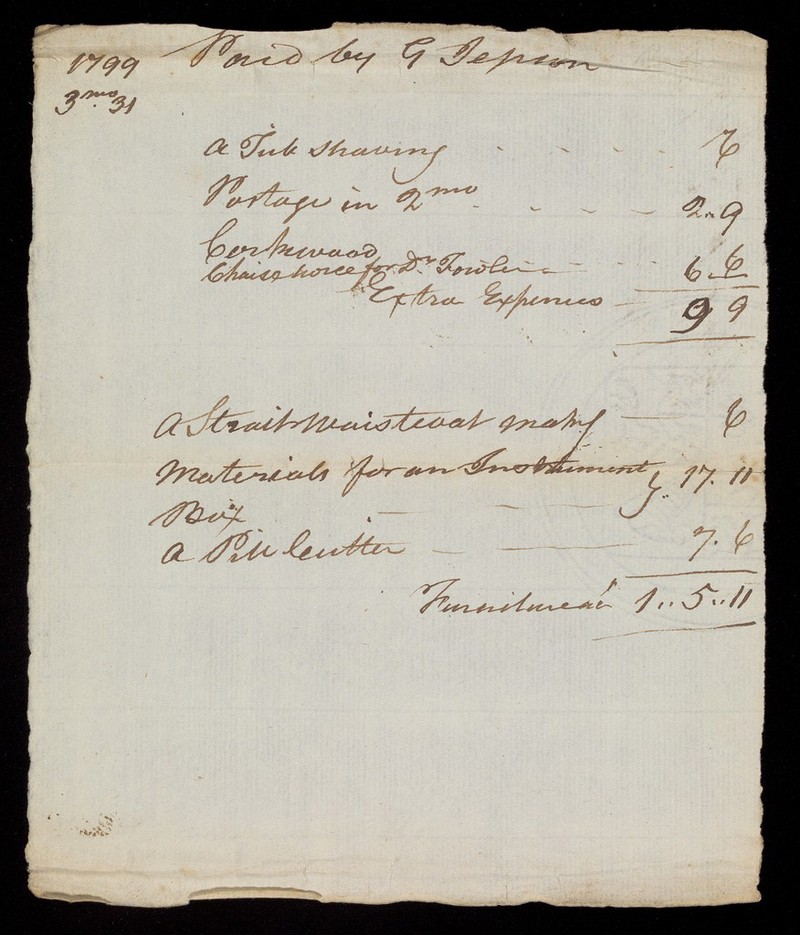 1799 Paid by G Jepson
3mo. 31
A Tub shaving - - - - - 6
Postage in 2mo - - - - 2.. 9
Corkwood
Chaise horse for Dr Fowler - - - 6.. 6
Extra Expences 9 9
A Strait Waistcoat making 6
Materials for an Instrument 17. 11
Box
A Pill Cutter - - - 7. 6
Furniture acct 1.. 5.. 11